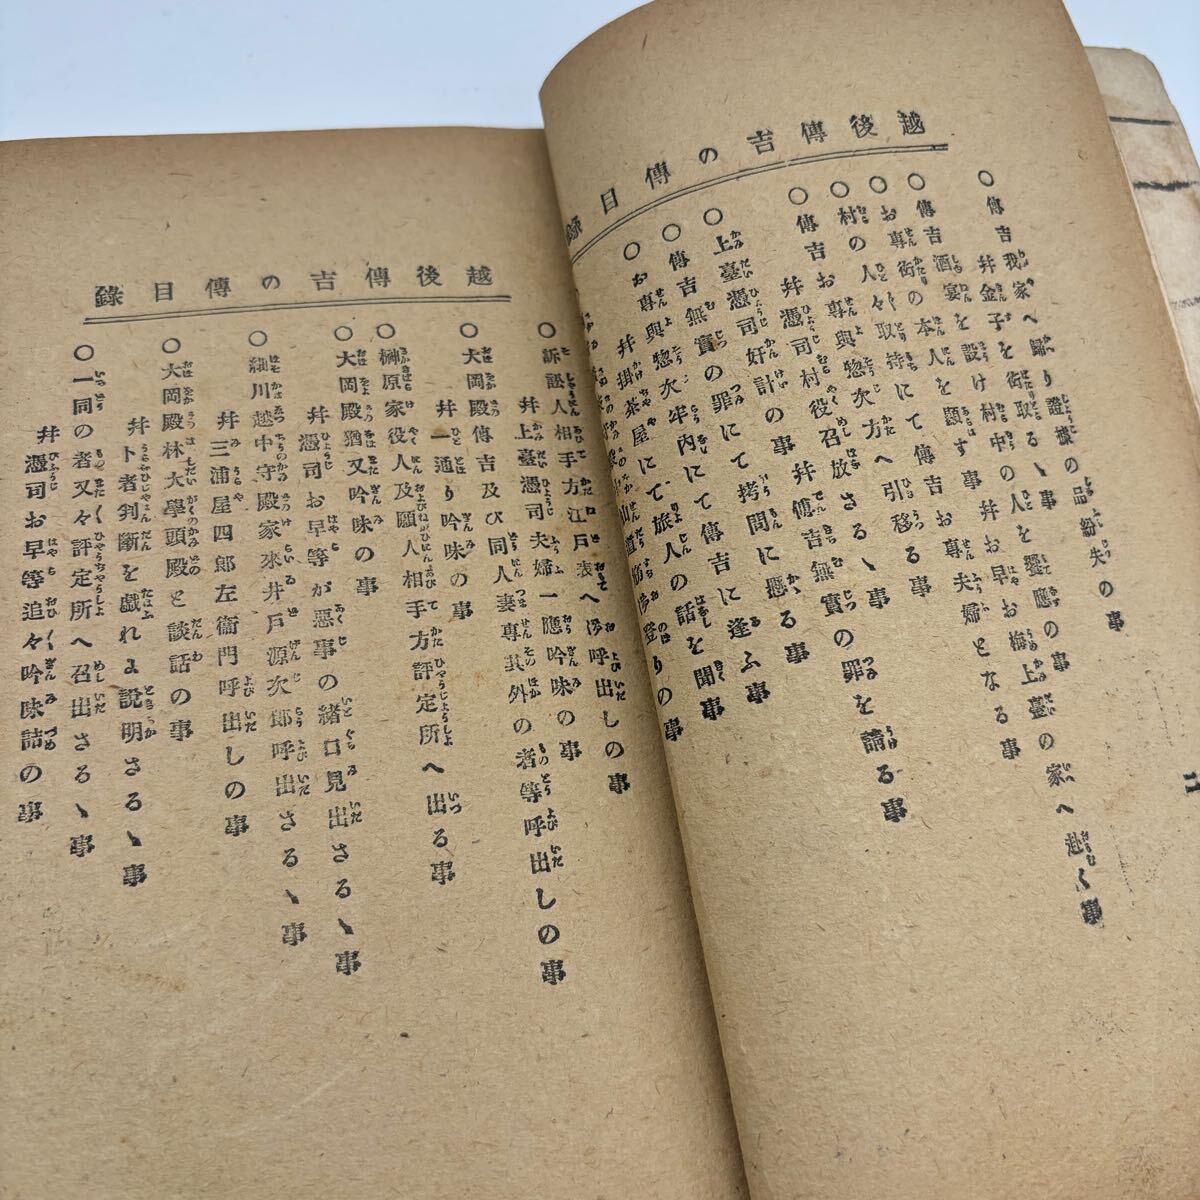 越後傳吉の傳目錄
○傳吉我家へ歸り證據の品紛失の事
幷金子を衒取るゝ事
○傳吉酒宴を設け村中の人を饗應の事
○お專衒の本人を顯す事幷お早お梅上臺の家へ赴く事
○村の人々取持にて傳吉お專夫婦となる事
お專與惣次方へ引移る事
○傳吉お
幷憑司村役召放さるゝ事
幷傳吉無實の罪を請る事
○上臺憑司奸計の事
○傳吉無實の罪にて拷問に懸る事
○お專與惣次牢內にて傳吉に逢ふ事
幷掛茶屋にて旅人の話を聞事
山道
登りの事
二
越後傳吉の傳目錄
○訴訟人相手方江戶表へ御呼出しの事
幷上臺憑司夫婦一應吟味の事
○大岡殿傳吉及び同人妻專其外の者等呼出しの事
幷一通り吟味の事
○榊原家役人及願人相手方評定所へ出る事
○大岡殿猶又吟味の事
幷憑司お早等が惡事の緖口見出さるゝ事
○細川越中守殿家來井戶源次郎呼出さるゝ事
幷三浦屋四郎左衞門呼出しの事
○大岡殿林大學頭殿と談話の事
幷卜者判斷を戲れに說明さるゝ事
○一同の者又々評定所へ召出さるゝ事
幷憑司お早等追々吟味詰の事